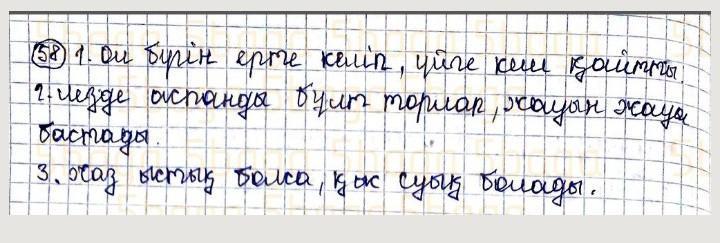 58 1. Ол бүгін ерте келіп, үйге кеш қайтты.
2. лезде аспанды бұлт торлап, жауын жауа
бастады.
3. жаз ыстық болса, қыс суық болады.